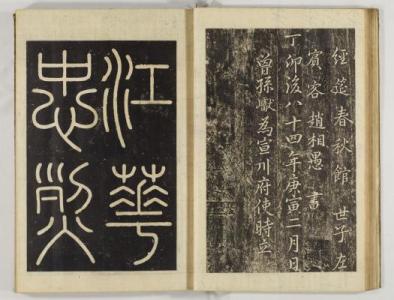 經筵春秋館 世子左
賓客趙相愚 書
丁卯後八十四年庚寅二月日
曾孫獻為宣川府使時立
江華
忠烈